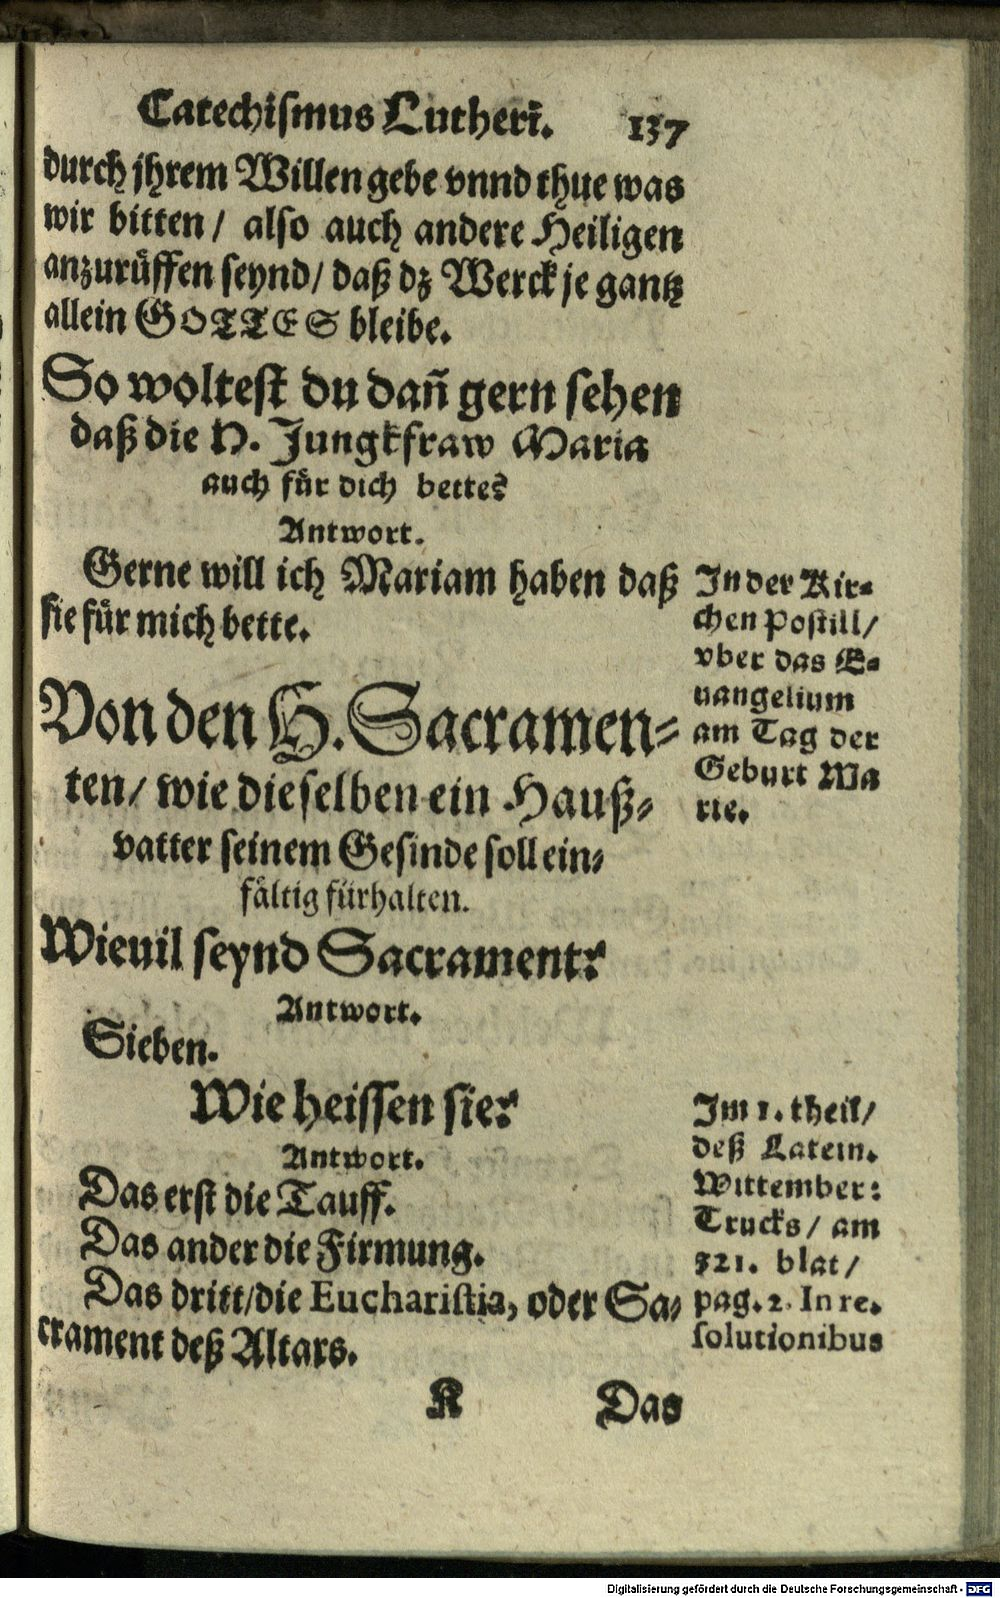 Catechismus Lutheri. 137
durch jhrem Willen gebe vnnd thue was
wir bitten / also auch andere Heiligen
anzurüffen seynd / daß dz Werck je gantz
allein GOTTES bleibe.
So woltest du dañ gern sehen
daß die H. Jungkfraw Maria
auch für dich bette?
Antwort.
Gerne will ich Mariam haben daß
sie für mich bette.
In der Kir-
chen Postill /
vber das E-
uangelium
am Tag der
Geburt Ma
rie.
Von den H. Sacramen-
ten / wie dieselben ein Hauß-
vatter seinem Gesinde soll ein-
fältig fürhalten.
Wieuil seynd Sacrament?
Antwort.
Sieben.
Wie heissen sie?
Antwort.
Das erst die Tauff.
Das ander die Firmung.
Das dritt / die Eucharistia, oder Sa-
crament deß Altars.
Im 1. theil /
deß Latein.
Wittember:
Trucks / am
521. blat /
pag. 2. In re.
solutionibus
K Das
Digitalisierung gefördert durch die Deutsche Forschungsgemeinschaft - DFG